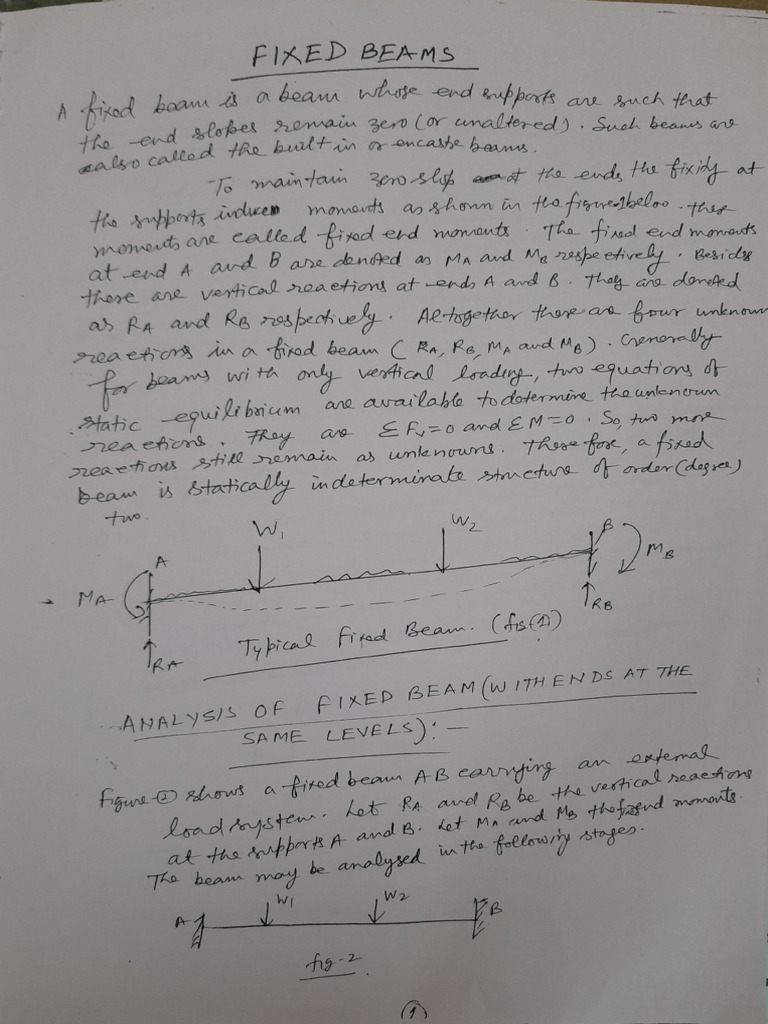 FIXED BEAMS
A fixed beam is a beam whose end supports are such that
the end slopes remain zero (or unaltered). Such beams are
also called the built in or encastre beams.
To maintain zero slop at the ends, the fixidy at
the supports induces moments as shown in the figure 1 below. These
moments are called fixed end moments. The fixed end moments
at end A and B are denoted as MA and MB respectively. Besides
there are vertical reactions at ends A and B. They are denoted
as RA and RB respectively. Altogether there are four unknown
reactions in a fixed beam (RA, RB, MA and MB). Generally
for beams with only vertical loading, two equations of
static equilibrium are available to determine the unknown
reactions. They are ΣFv=0 and ΣM=0. So, two more
reactions still remain as unknowns. Therefore, a fixed
beam is statically indeterminate structure of order (degree)
two.
W1 W2
A B
MA MB
RA RB
Typical Fixed Beam. (fig(1))
ANALYSIS OF FIXED BEAM (WITH ENDS AT THE
SAME LEVELS):-
Figure ② shows a fixed beam AB carrying an external
load system. Let RA and RB be the vertical reactions
at the supports A and B. Let MA and MB the fixed end moments.
The beam may be analysed in the following stages.
A W1 W2 B
fig-2
1